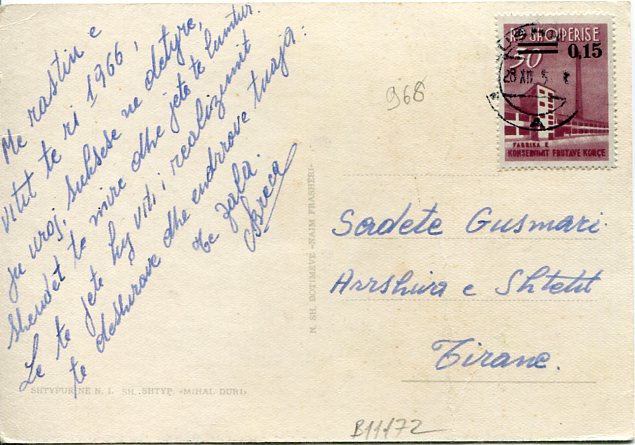 Me rastin e
vitit te ri 1966,
ju uroj, suksese ne detyre,
shendet te mire dhe jete te lumtur.
Le te jete ky viti i realizimit
te deshirave dhe endrrave tuaja:
Broca
968
RP. SHQIPERISE
50
0,15
28 XII
FABRIKA E
KONSERVIMIT FRUTAVE KORÇE
Sadete Gusmari
Arrshiva e Shtetit
Tirane.
N. SH. BOTIMEVE «NAIM FRASHERI»
SHTYPUR NE N. I. SH. SHTYP. «MIHAL DURI»
B11172